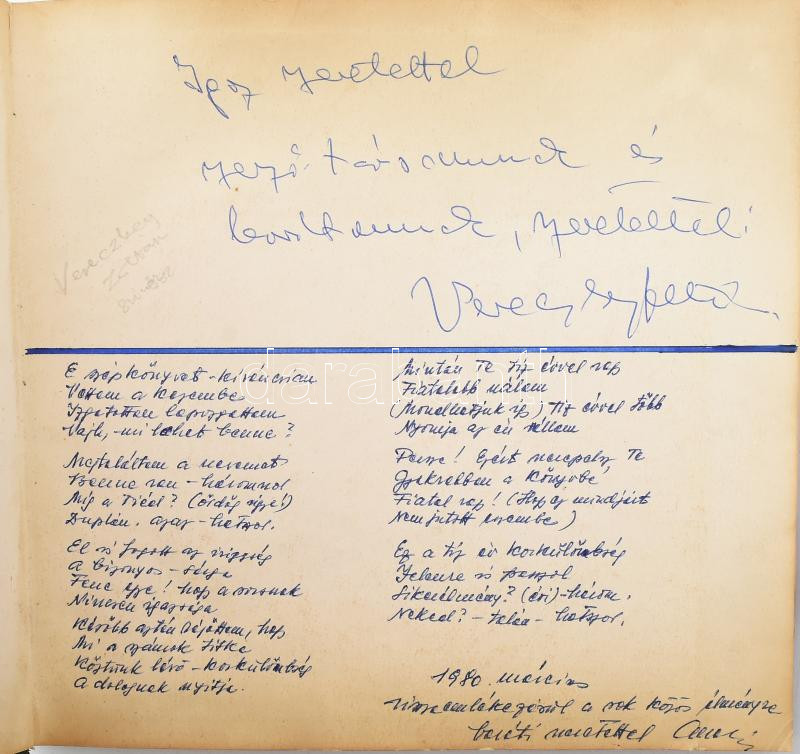 Igaz szeretettel
szerzőtársamnak és
barátomnak, szeretettel:
Vereczkey
Zoltán
E szép könyvet - kíváncsian
Vettem a kezembe
Izgatottan lapozgattam
Vajh, - mi lehet benne?
Megtaláltam a nevemet
Benne van - háromszor
Míg a Tiéd? (ördög vigye!)
Duplán, azaz - hatszor.
El is fogott az irigység
A bizonyos - sárga
Fene egye! hogy a sorsnak
Nincsen igazsága
Később aztán rájöttem, hogy
Mi a számok titka
Köztünk lévő - korkülönbség
A dolognak nyitja.
Miután Te tíz évvel vagy
Fiatalabb nálam
(Mondhatjuk így) tíz évvel több
Nyomja az én vállam
Persze! Ezért szerepelsz Te
Gyakrabban a könyvbe
Fiatal vagy! (Hogy ez mindjárt
Nem jutott eszembe)
Ez a tíz év korkülönbség
Jelenre is passzol
Sikerélmény? (évi) - három.
Neked? - talán - hatszor.
1980. március
visszaemlékezésül a sok közös élményre
baráti szeretettel
darabanth